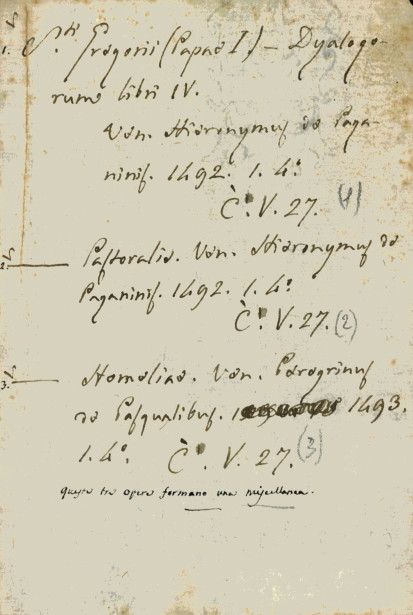 1. S.ti Gregorii (Papae I.) — Dyalogo-
rum libri IV.
Ven. Hieronymus de Paga-
ninis. 1492. 1. 4.º
C. V. 27. (1)
2. — Pastoralia. Ven. Hieronymus de
Paganinis. 1492. 1. 4º
C. V. 27. (2)
3. — Homeliae. Ven. Peregrinus
de Pasqualibus. 1493.
1. 4º. C. V. 27. (3)
Queste tre opere formano una miscellanea.